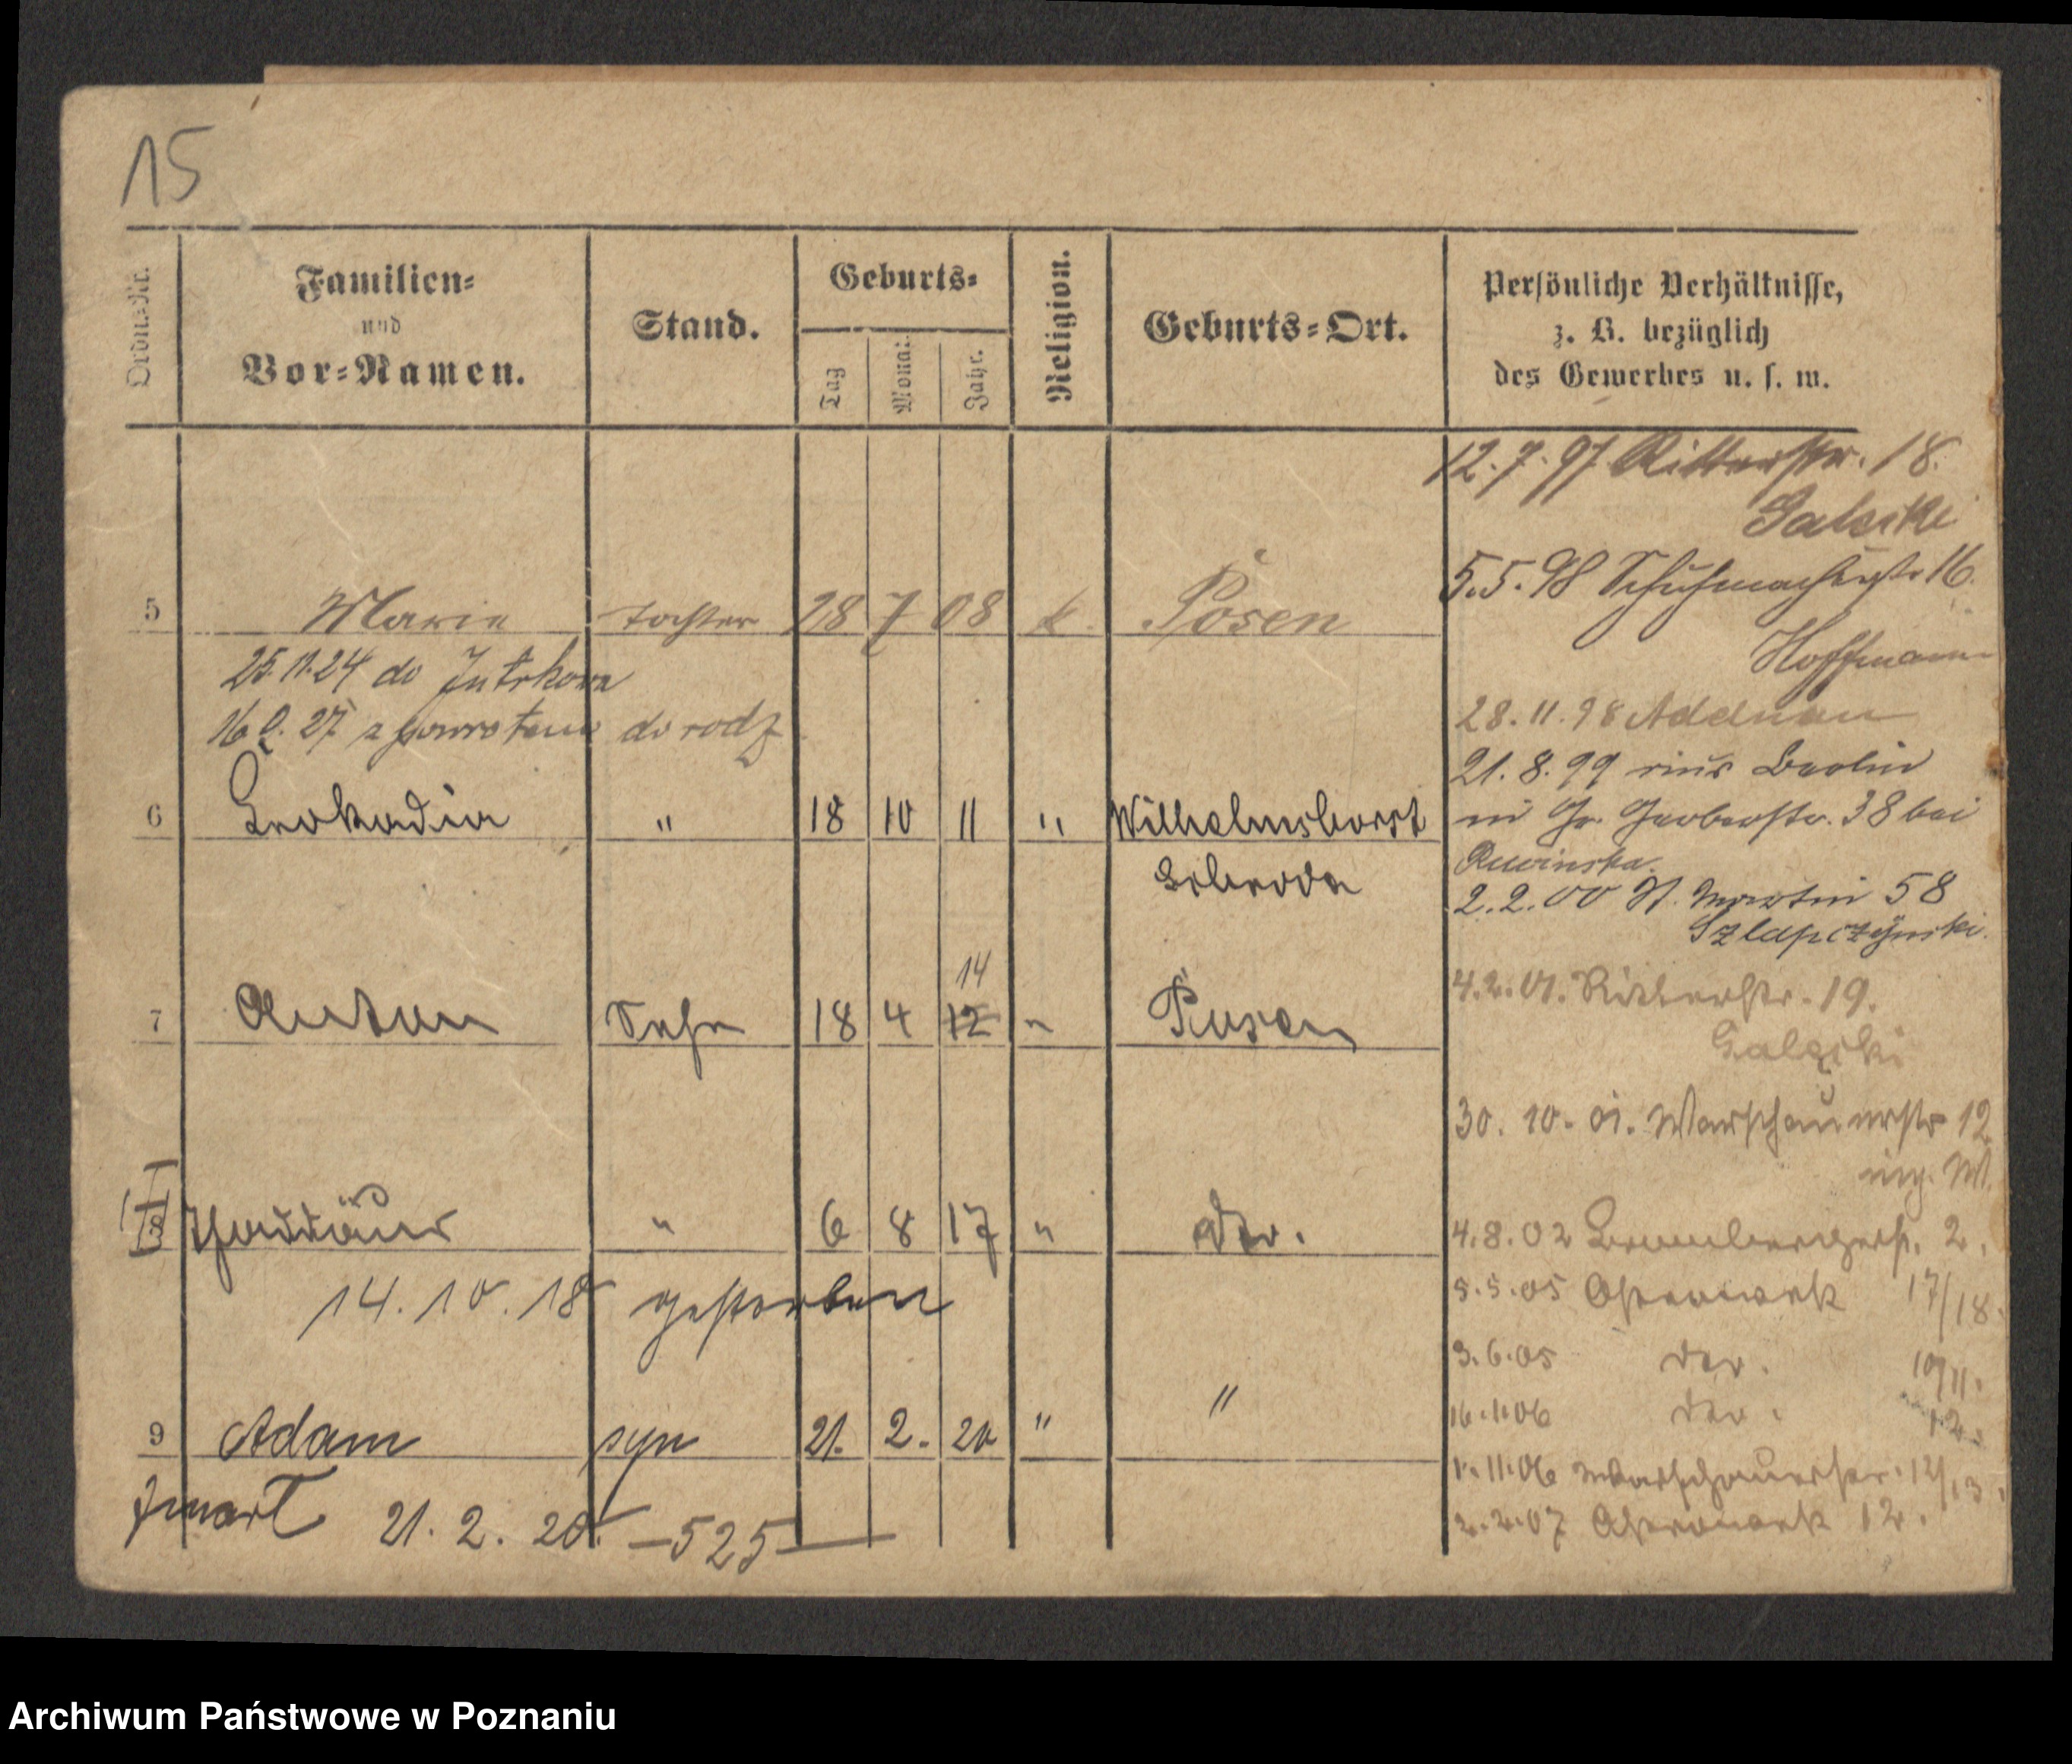 15
Ordn.-Nr.
Familien-
und
Vor-Namen.
Stand.
Geburts-
Tag
Monat
Jahr.
Religion.
Geburts-Ort.
Persönliche Verhältnisse,
z. B. bezüglich
des Gewerbes u. s. w.
5 Marie Tochter 28 7 08 k. Posen
25.11.24 do Jutrkowa
16 27 z powrotem do rodz
6 Leokadia " 18 10 11 " Wilhelmshorst
Schroda
14
7 Anton Sohn 18 4 12 " Posen
8 Thaddäus " 6 8 17 " do.
14.10.18 gestorben
9 Adam syn 21. 2. 20 " "
zmarł 21. 2. 20. – 525 –
12.7.97 Ritterstr. 18.
Galecki
5.5.98 Schuhmacherstr. 16.
Hoffmann
28.11.98 Adelnau
21.8.99 aus Berlin
in Gr. Gerberstr. 38 bei
2.2.00 St. Martin 58
Szlapczynski.
4.2.01. Ritterstr. 19.
Galecki
30. 10. 01. Warschauerstr 12
4.8.02 Brombergerstr. 2.
5.5.05 Ostrowek 17/18.
3.6.05 do. 10/11.
16.1.06 do. 12.
1.11.06 Warschauerstr. 12/13.
2.2.07 Ostrowek 12.
Archiwum Państwowe w Poznaniu